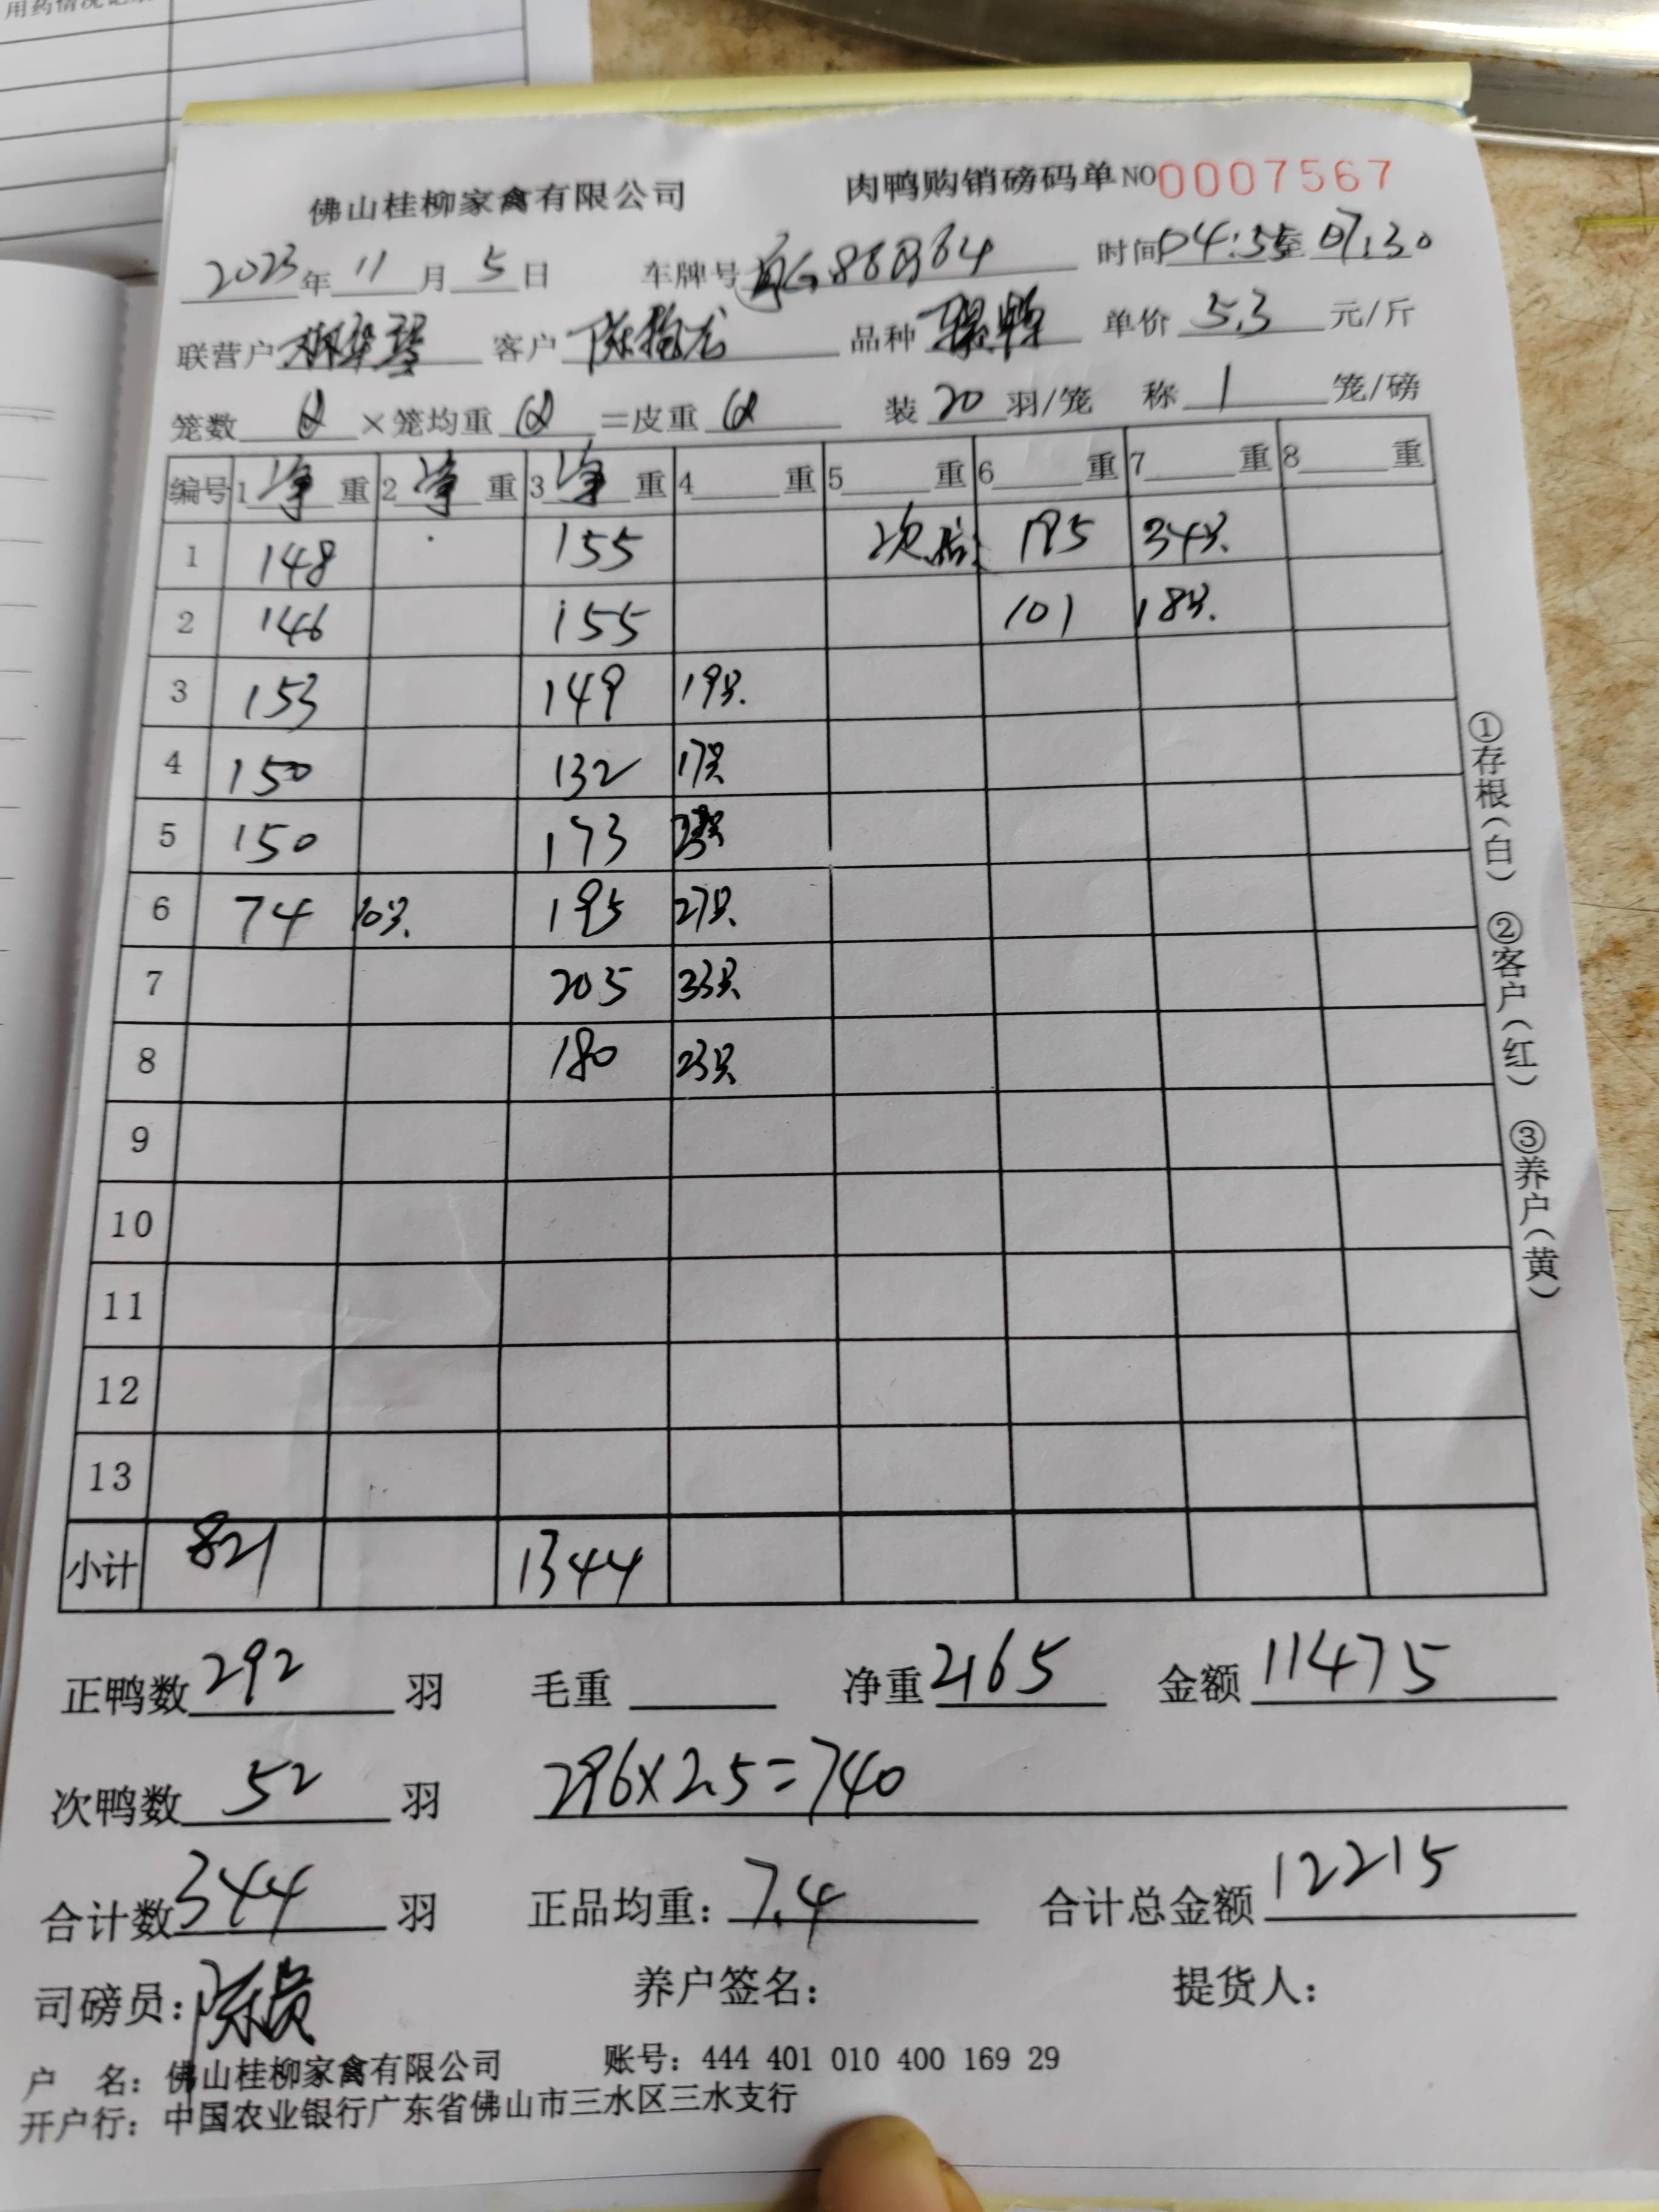 用药情况记录
佛山桂柳家禽有限公司 肉鸭购销磅码单 NO 0007567
2023年 11 月 5 日 车牌号 时间 04:55 至 07:30
联营户 客户 品种 骡鸭 单价 5.3 元/斤
笼数 ×笼均重 =皮重 装 20 羽/笼 称 1 笼/磅
编号 1 净 重 2 净 重 3 净 重 4 重 5 重 6 重 7 重 8 重
1 148 155 次 195 34只.
2 146 155 101 18只.
3 153 149 19只.
4 150 132 17只
5 150 173
6 74 10只. 195 27只.
7 205 33只
8 180 23只
9
10
11
12
13
小计 821 1344
正鸭数 292 羽 毛重 净重 2165 金额 11475
次鸭数 52 羽 296×2.5=740
合计数 344 羽 正品均重: 7.4 合计总金额 12215
司磅员: 养户签名: 提货人:
户 名: 佛山桂柳家禽有限公司 账号: 444 401 010 400 169 29
开户行: 中国农业银行广东省佛山市三水区三水支行
①存根(白) ②客户(红) ③养户(黄)